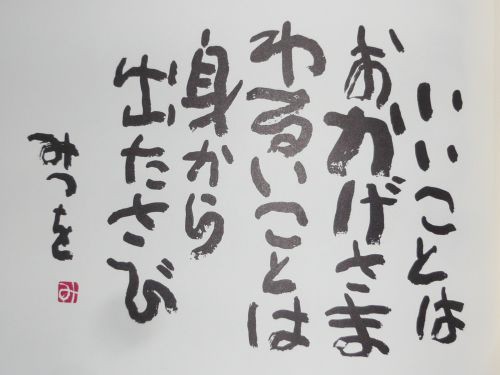 いいことは
おかげさま
わるいことは
身から
出たさび
み